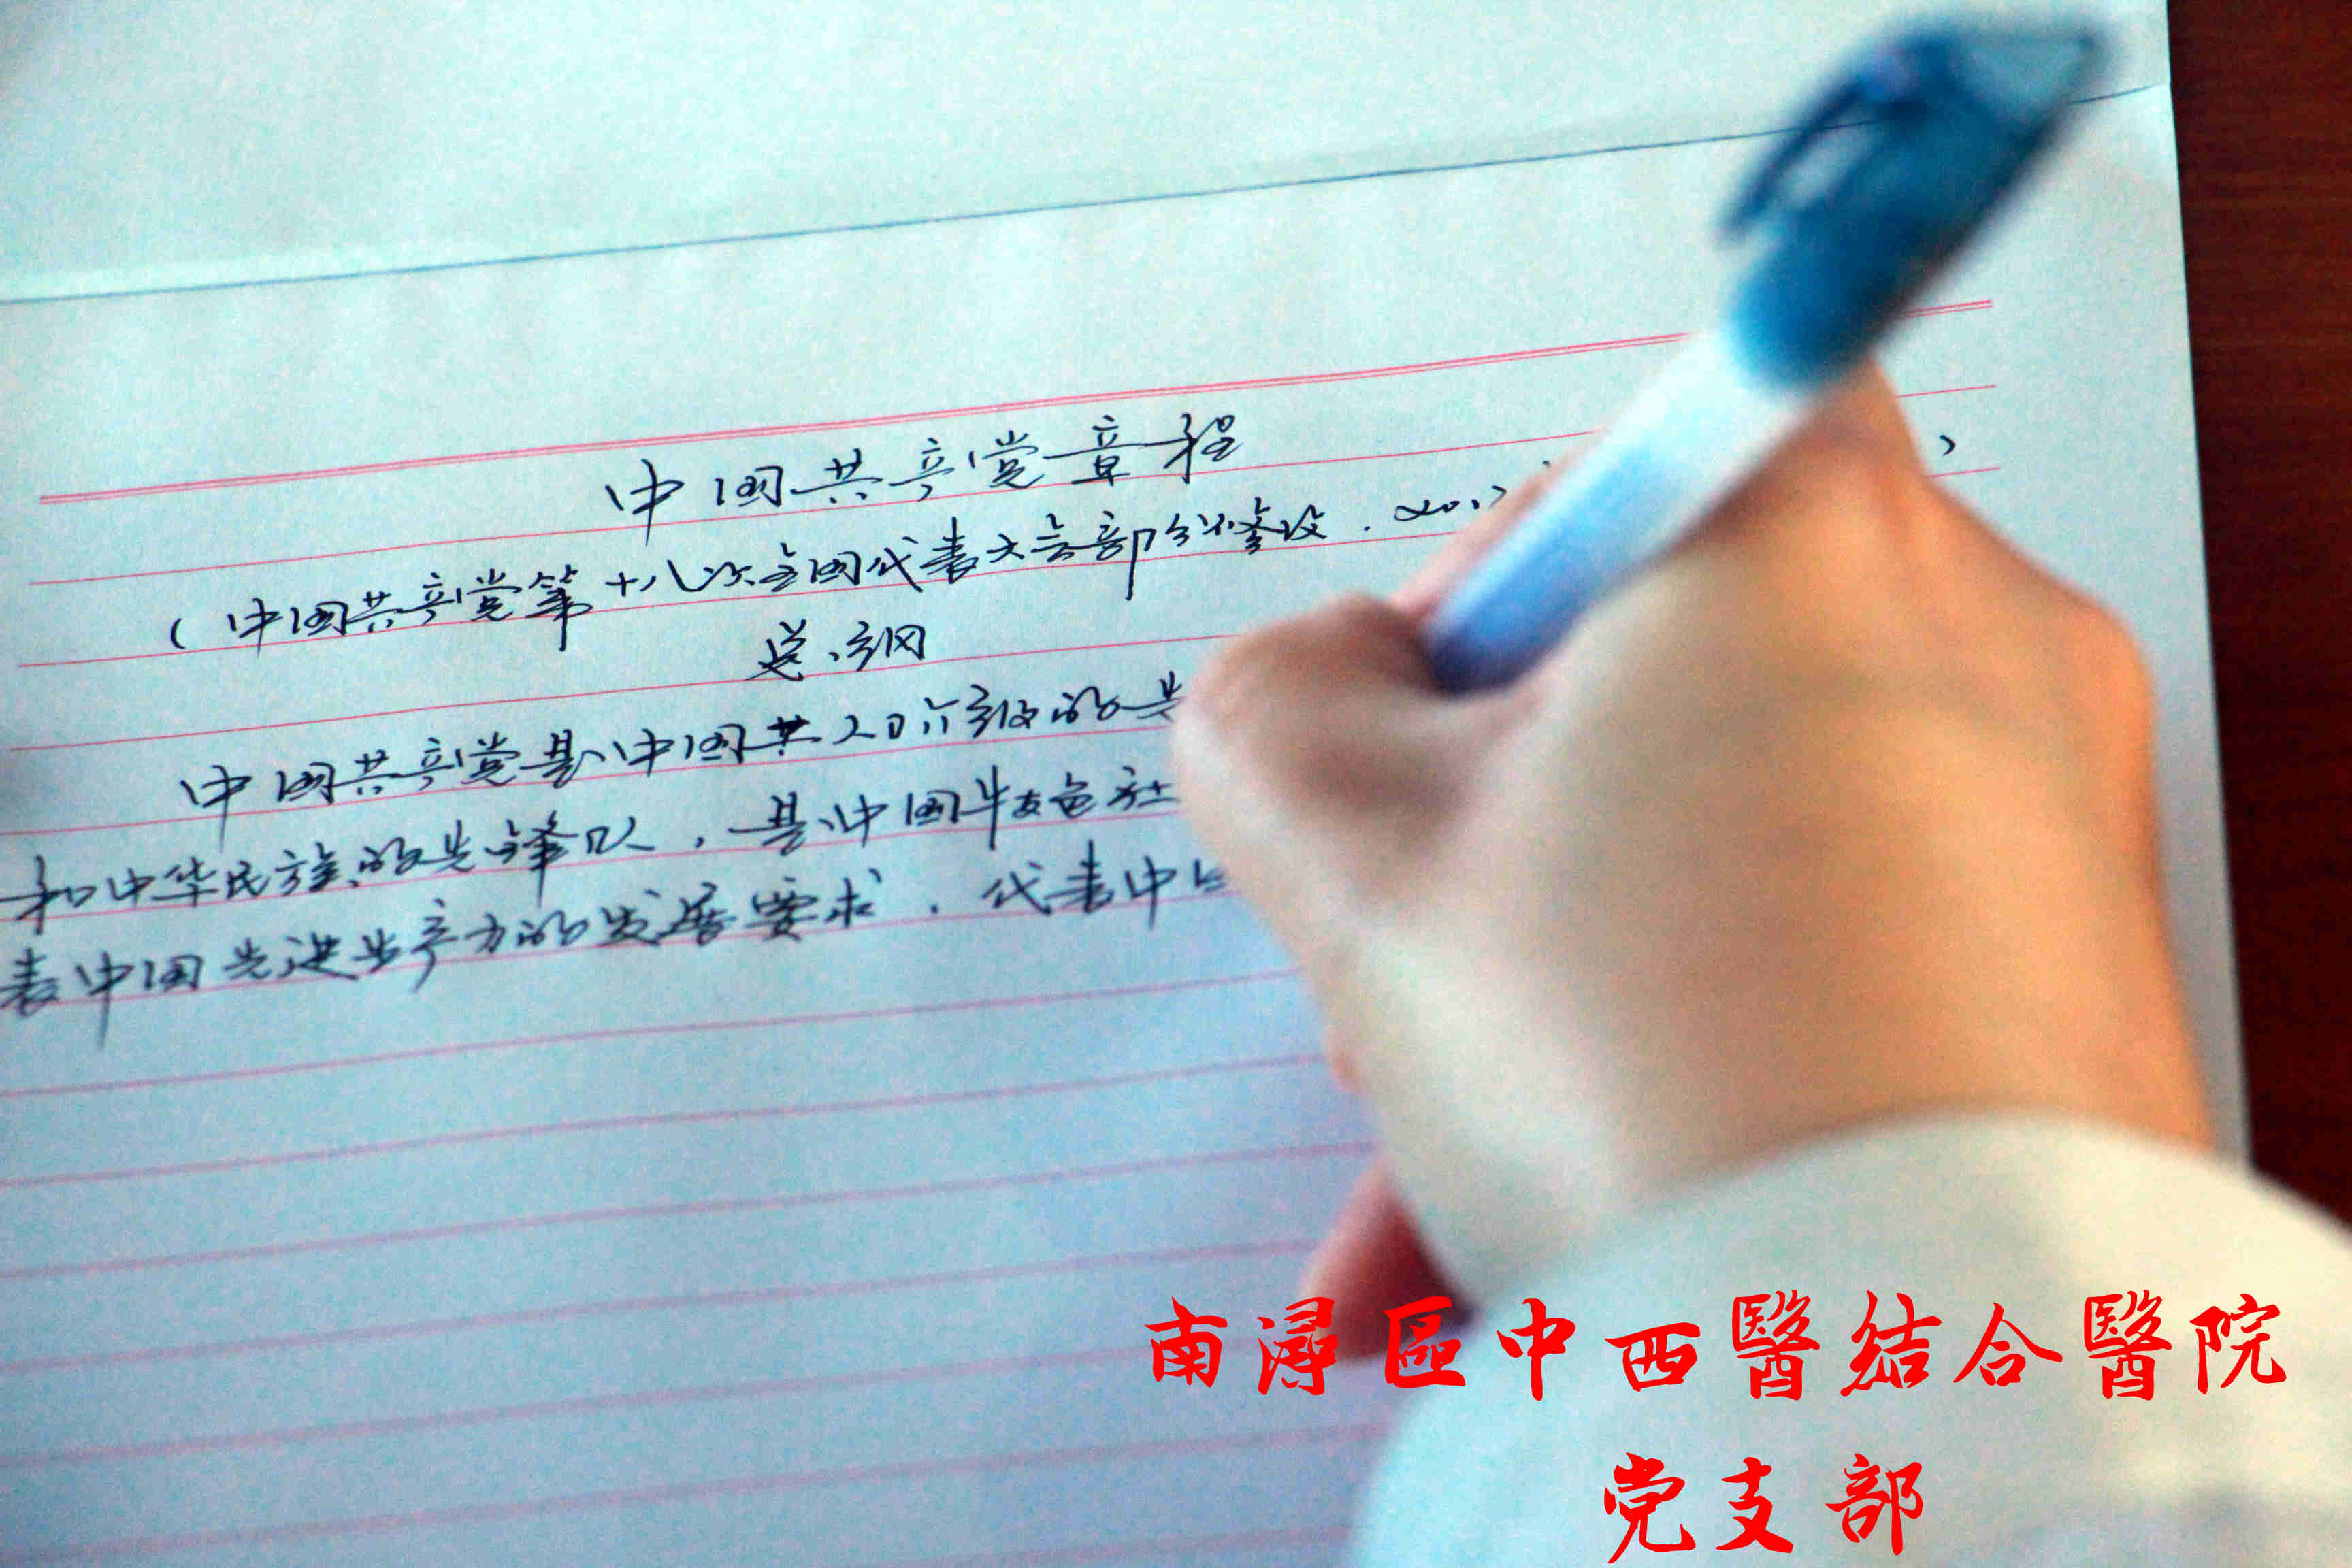 中国共产党章程
(中国共产党第十八次全国代表大会部分修改. 2012
总纲
中国共产党是中国工人阶级的先
和中华民族的先锋队,是中国特色社
表中国先进生产力的发展要求,代表中
南潯區中西醫結合醫院
党支部